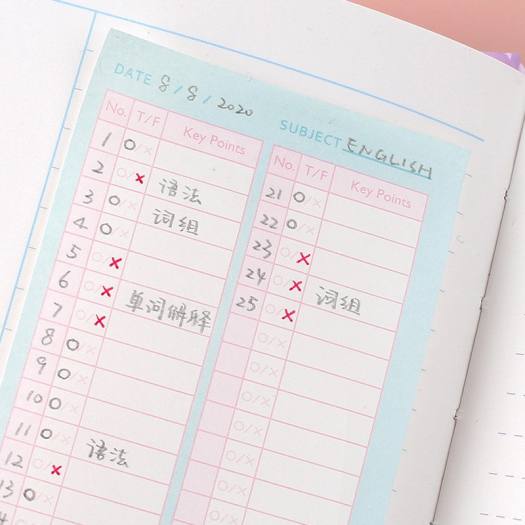 DATE 8/8/2020
SUBJECT ENGLISH
No. T/F Key Points
1 O/×
2 O/× 语法
3 O/× 词组
4 O/×
5 O/×
6 O/× 单词解释
7 O/×
8 O/×
9 O/×
10 O/×
11 O/× 语法
12 O/×
13 O/×
No. T/F Key Points
21 O/×
22 O/×
23 O/×
24 O/× 词组
25 O/×
O/×
O/×
O/×
O/×
O/×
O/×
O/×
O/×